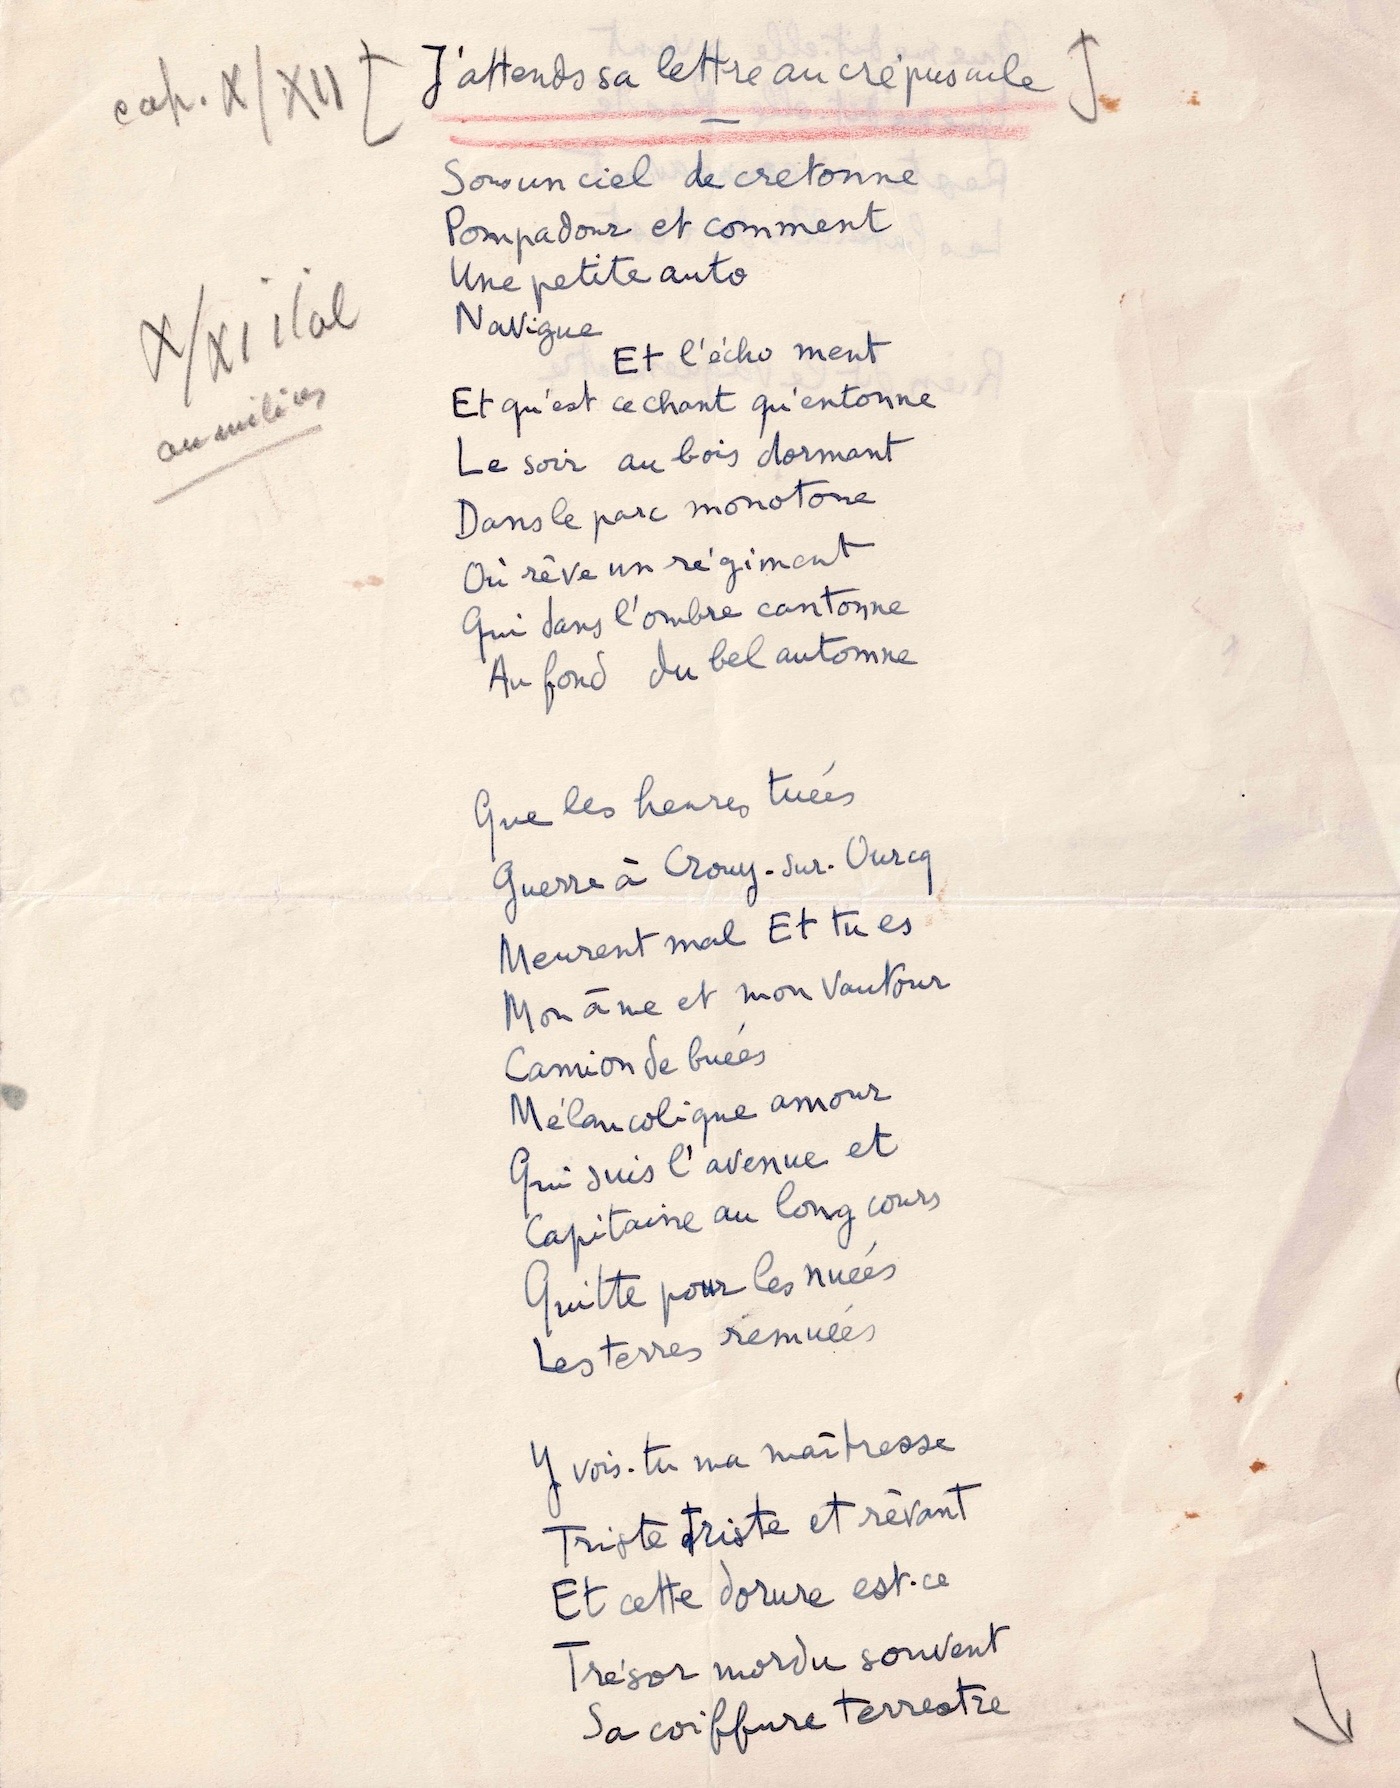 cap. X/XII [ J'attends sa lettre au crépuscule ]
Sous un ciel de cretonne
Pompadour et comment
Une petite auto
Navigue
Et l'écho ment
X/XI ital
au milieu
Et qu'est ce chant qu'entonne
Le soir au bois dormant
Dans le parc monotone
Où rêve un régiment
Qui dans l'ombre cantonne
Au fond du bel automne
Que les heures tuées
Guerre à Crouy-sur-Ourcq
Meurent mal Et tu es
Mon âme et mon vautour
Camion de buées
Mélancolique amour
Qui suis l'avenue et
Capitaine au long cours
Quitte pour les nuées
Les terres remuées
Y vois-tu ma maîtresse
Triste triste et rêvant
Et cette dorure est-ce
Trésor mordu souvent
Sa coiffure terrestre